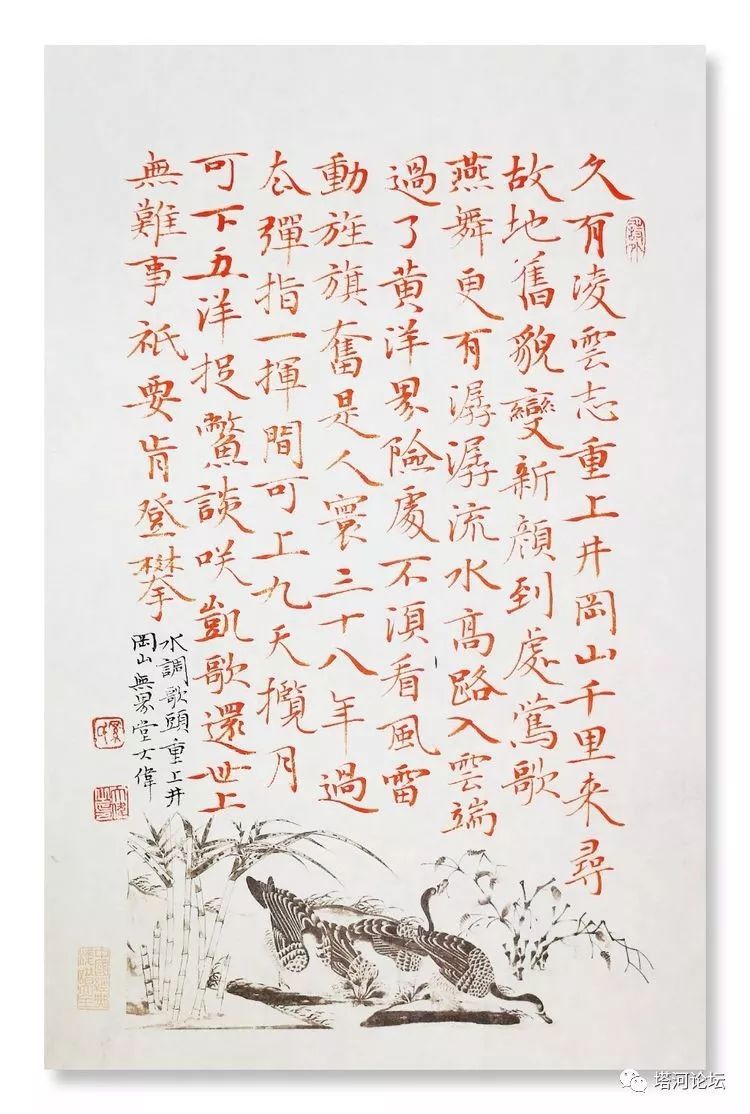 久有凌雲志重上井岡山千里来尋
故地舊貌變新顔到處鶯歌
燕舞更有潺潺流水高路入雲端
過了黄洋界險處不湏看風雷
動旌旗奮是人寰三十八年過
去彈指一揮間可上九天攬月
可下五洋捉鱉談咲凱歌還世上
無難事祇要肯登攀
水調歌頭重上井
岡山無界堂大偉
塔河论坛